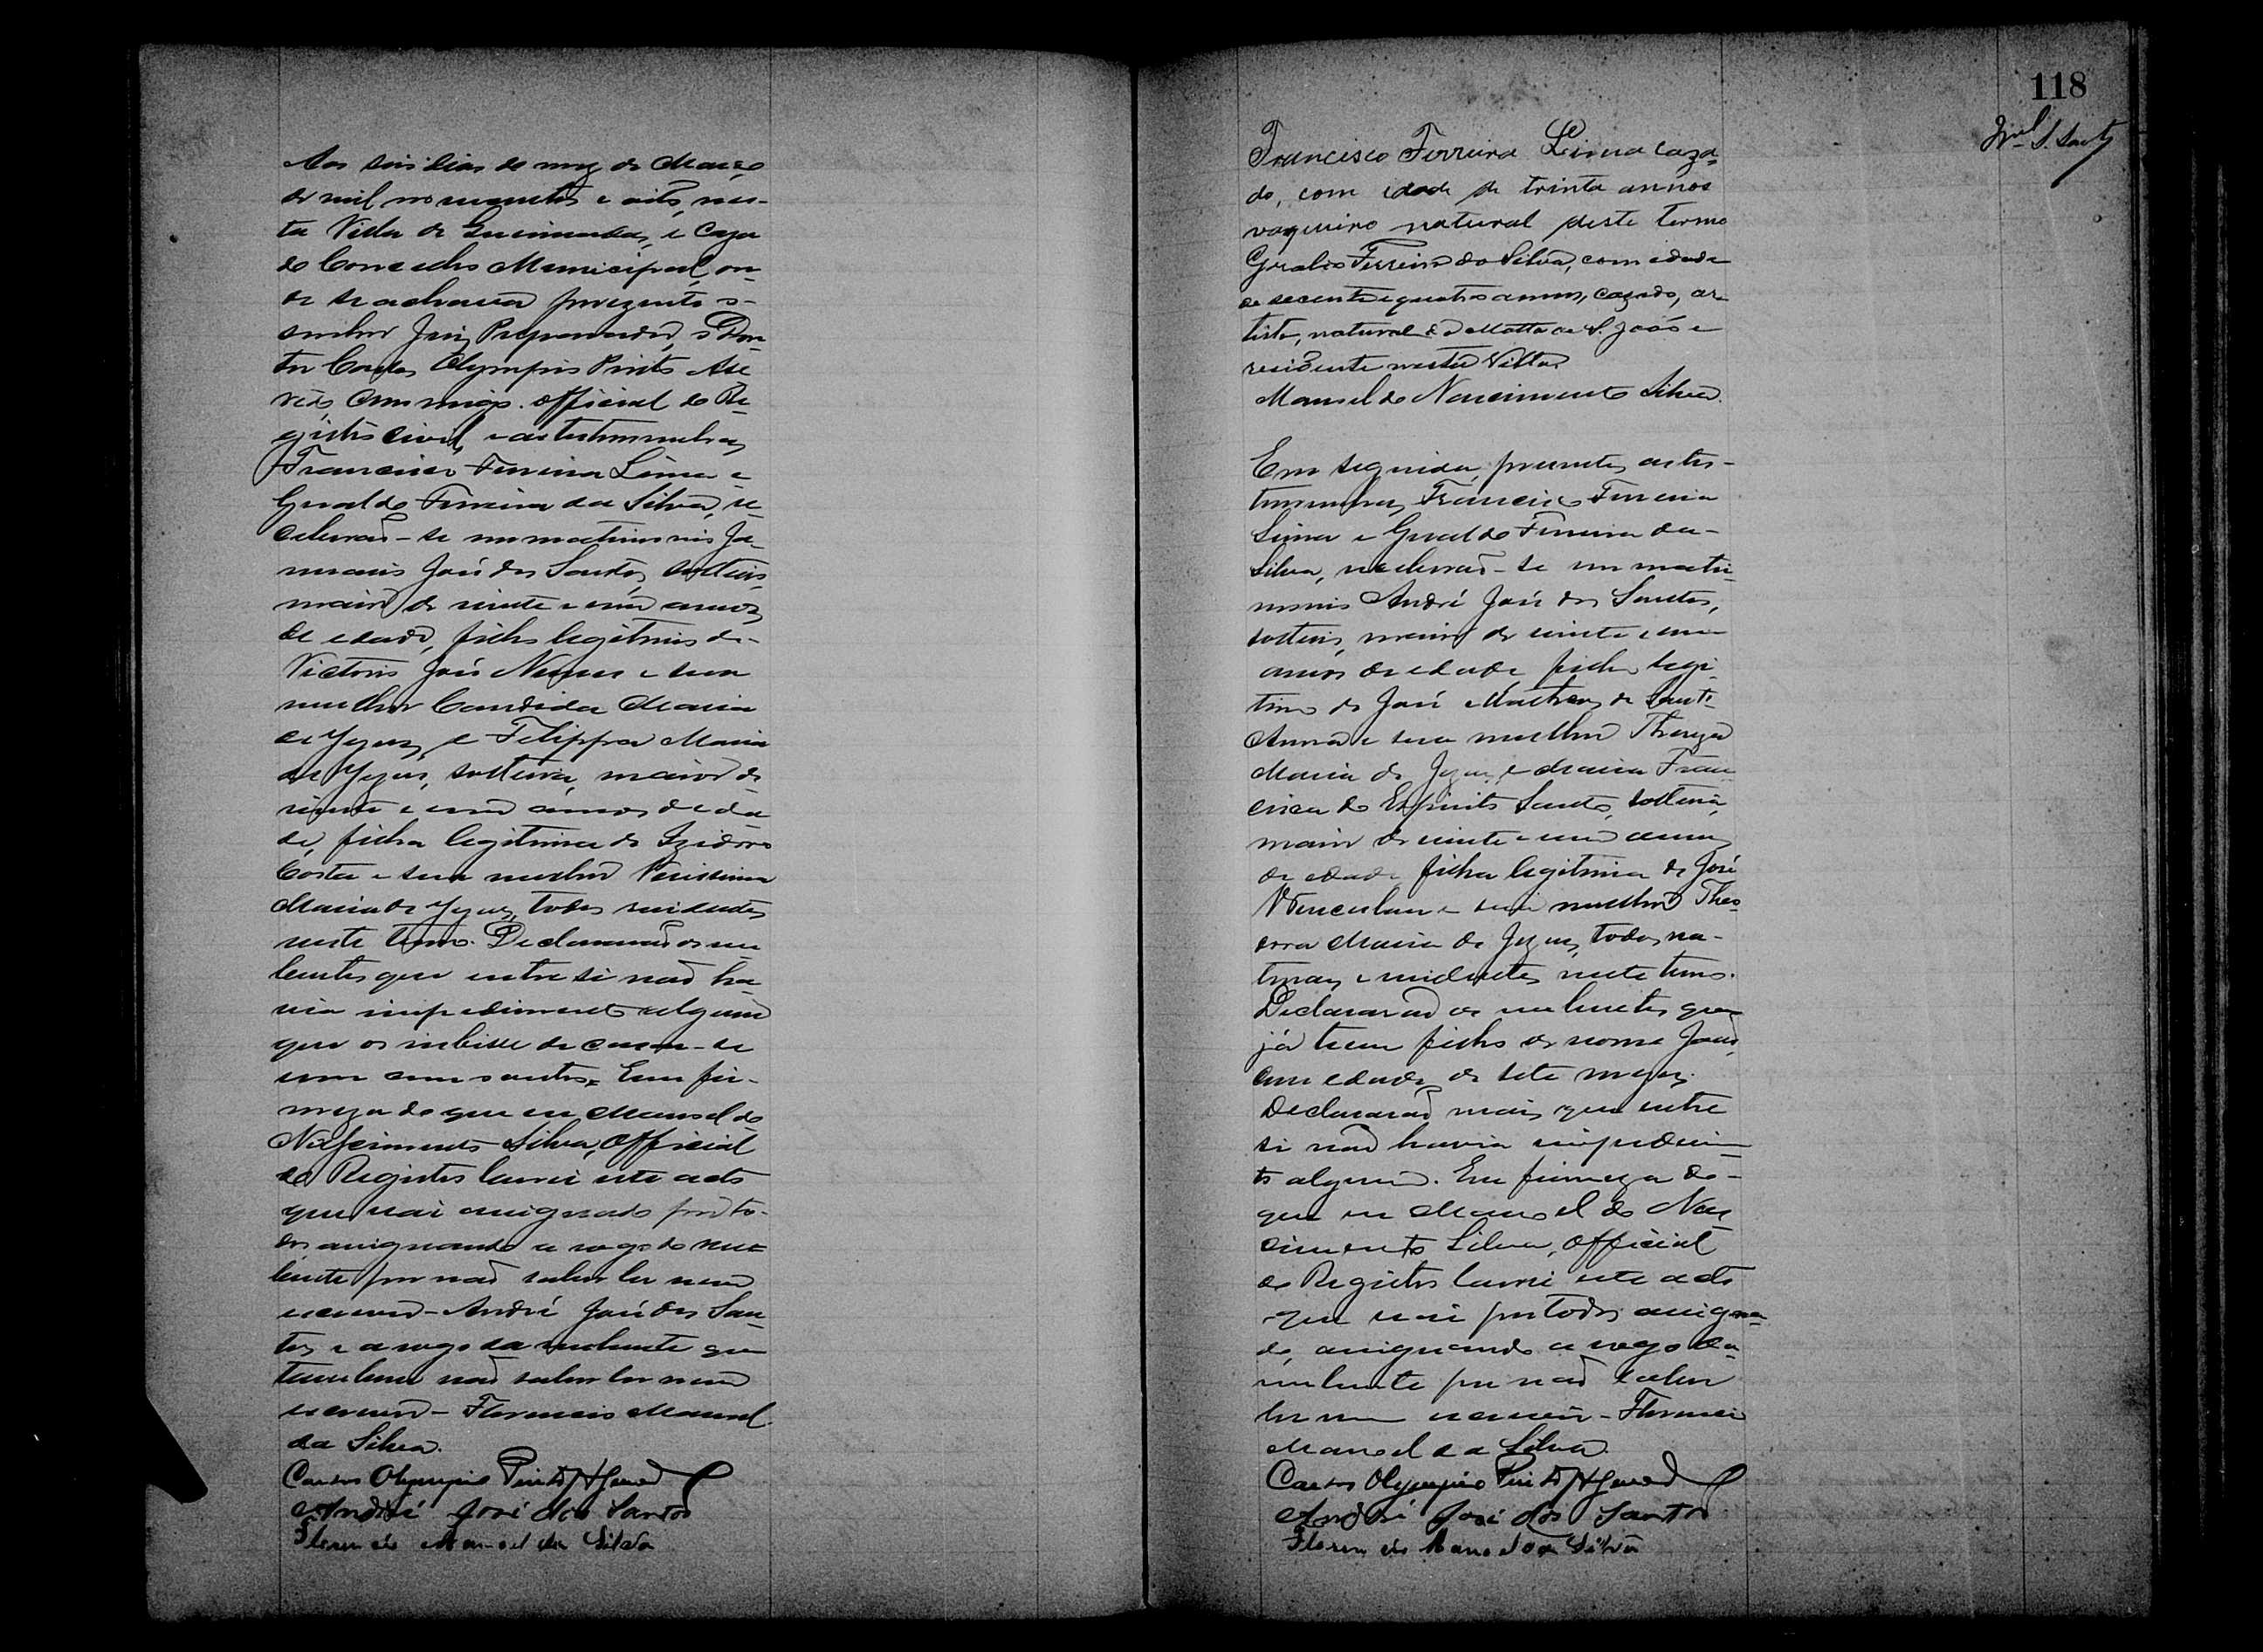 Aos seis dias do mez de Março
de mil novecentos e oito, nes-
ta Villa de Queimadas, e Caza
do Concelho Municipal, on-
de se achava prezente o
senhor Juiz Preparador, o Dou-
tor Carlos Olympio Pinto Aze
vedo, commigo official do Re-
gistro civil, e as testemunhas,
Francisco Ferreira Lima e
Geraldo Ferreira da Silva, re-
ceberão-se em matrimonio
José dos Santos, solteiro,
maior de vinte e um annos
de edade, filho legitimo de
Victorio José Nunes e sua
mulher Candida Maria
de Jezus, e Filippa Maria
de Jezus, solteira, maior de
vinte e um annos de eda
de, filha legitima de Izidoro
Costa e sua mulher Verissima
Maria de Jezus, todos residentes
neste termo. Declararão os nu-
bentes que entre si não ha-
via impedimento algum
que os inhibisse de casar-se
um com o outro. Em fir-
meza do que eu Manoel do
Nascimento Silva, Official
do Registro lavrei este acto
que vai assignado por to-
dos, assignando a rogo do nu-
bente por não saber ler nem
escrever - André José dos San-
tos, e a rogo da nubente que
tambem não saber ler nem
escrever - Florencio Manoel
da Silva.
Carlos Olympio Pinto Azevedo
André José dos Santos
Florencio Manoel da Silva
118
Francisco Ferreira Lima caza-
do, com idade de trinta annos
vaqueiro natural deste termo
Geraldo Ferreira da Silva, com idade
de secenta e quatro annos, cazado, ar-
tista, natural da Matta de S. João e
residente nesta Villa.
Manoel do Nascimento Silva.
Em seguida, prezentes as tes-
temunhas, Francisco Ferreira
Lima e Geraldo Ferreira da
Silva, receberão-se em matri-
monio André José dos Santos,
solteiro, maior de vinte e um
annos de edade filho legi-
timo de José Matheus de Sant'
Anna e sua mulher Thereza
Maria de Jezus, e Maria Fran-
cisca do Espirito Santo, solteira,
maior de vinte e um annos
de edade filha legitima de José
e sua mulher Theo-
dora Maria de Jezus, todos na-
turaes e residentes neste termo.
Declararão os nubentes que
já teem filho de nome João,
com edade de sete mezes.
Declararão mais que entre
si não havia impedimen-
to algum. Em firmeza do
que eu Manoel do Nas-
cimento Silva, Official
do Registro lavrei este acto
que vai por todos assigna-
do, assignando a rogo da
nubente por não saber
ler nem escrever - Florencio
Manoel da Silva.
Carlos Olympio Pinto Azevedo
André José dos Santos
Florencio Manoel da Silva